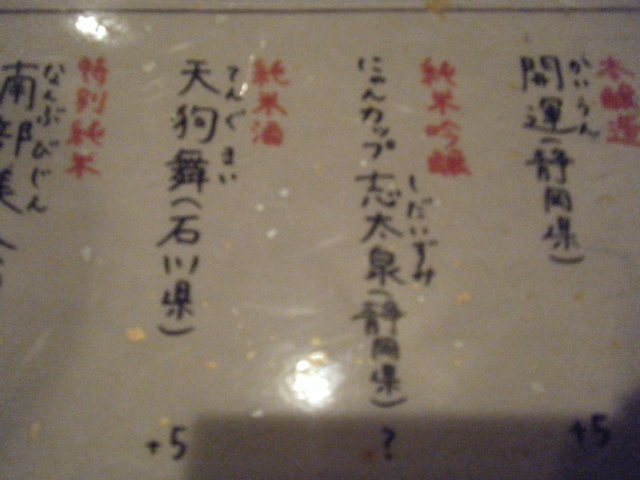 本醸造
かいうん
開運(静岡県)
+5
純米吟醸
しだいずみ
にゃんカップ志太泉(静岡県)
?
純米酒
てんぐまい
天狗舞(石川県)
+5
特別純米
なんぶびじん
南部美人